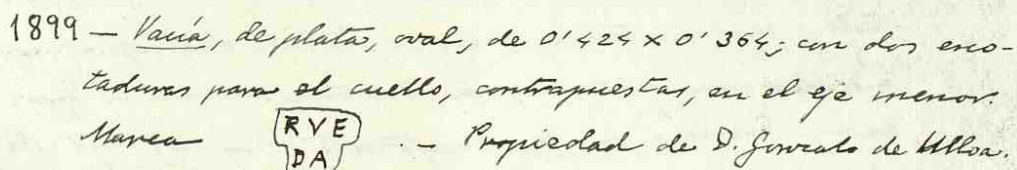 1899 — Vacía, de plata, oval, de 0'424 x 0'364; con dos esco-
taduras para el cuello, contrapuestas, en el eje menor.
Marca RVE DA . — Propiedad de D. Gonzalo de Ulloa.